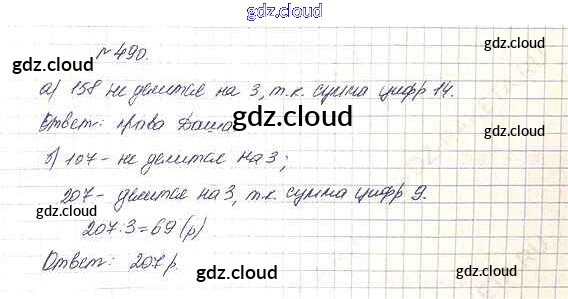 gdz.cloud
№ 490.
gdz.cloud gdz.cloud
а) 158 не делится на 3, т.к. сумма цифр 14.
gdz.cloud
Ответ: права Даша
gdz.cloud
б) 107 - не делится на 3;
207 - делится на 3, т.к. сумма цифр 9.
gdz.cloud gdz.cloud
207:3=69 (р)
Ответ: 207 р.
gdz.cloud
gdz.cloud